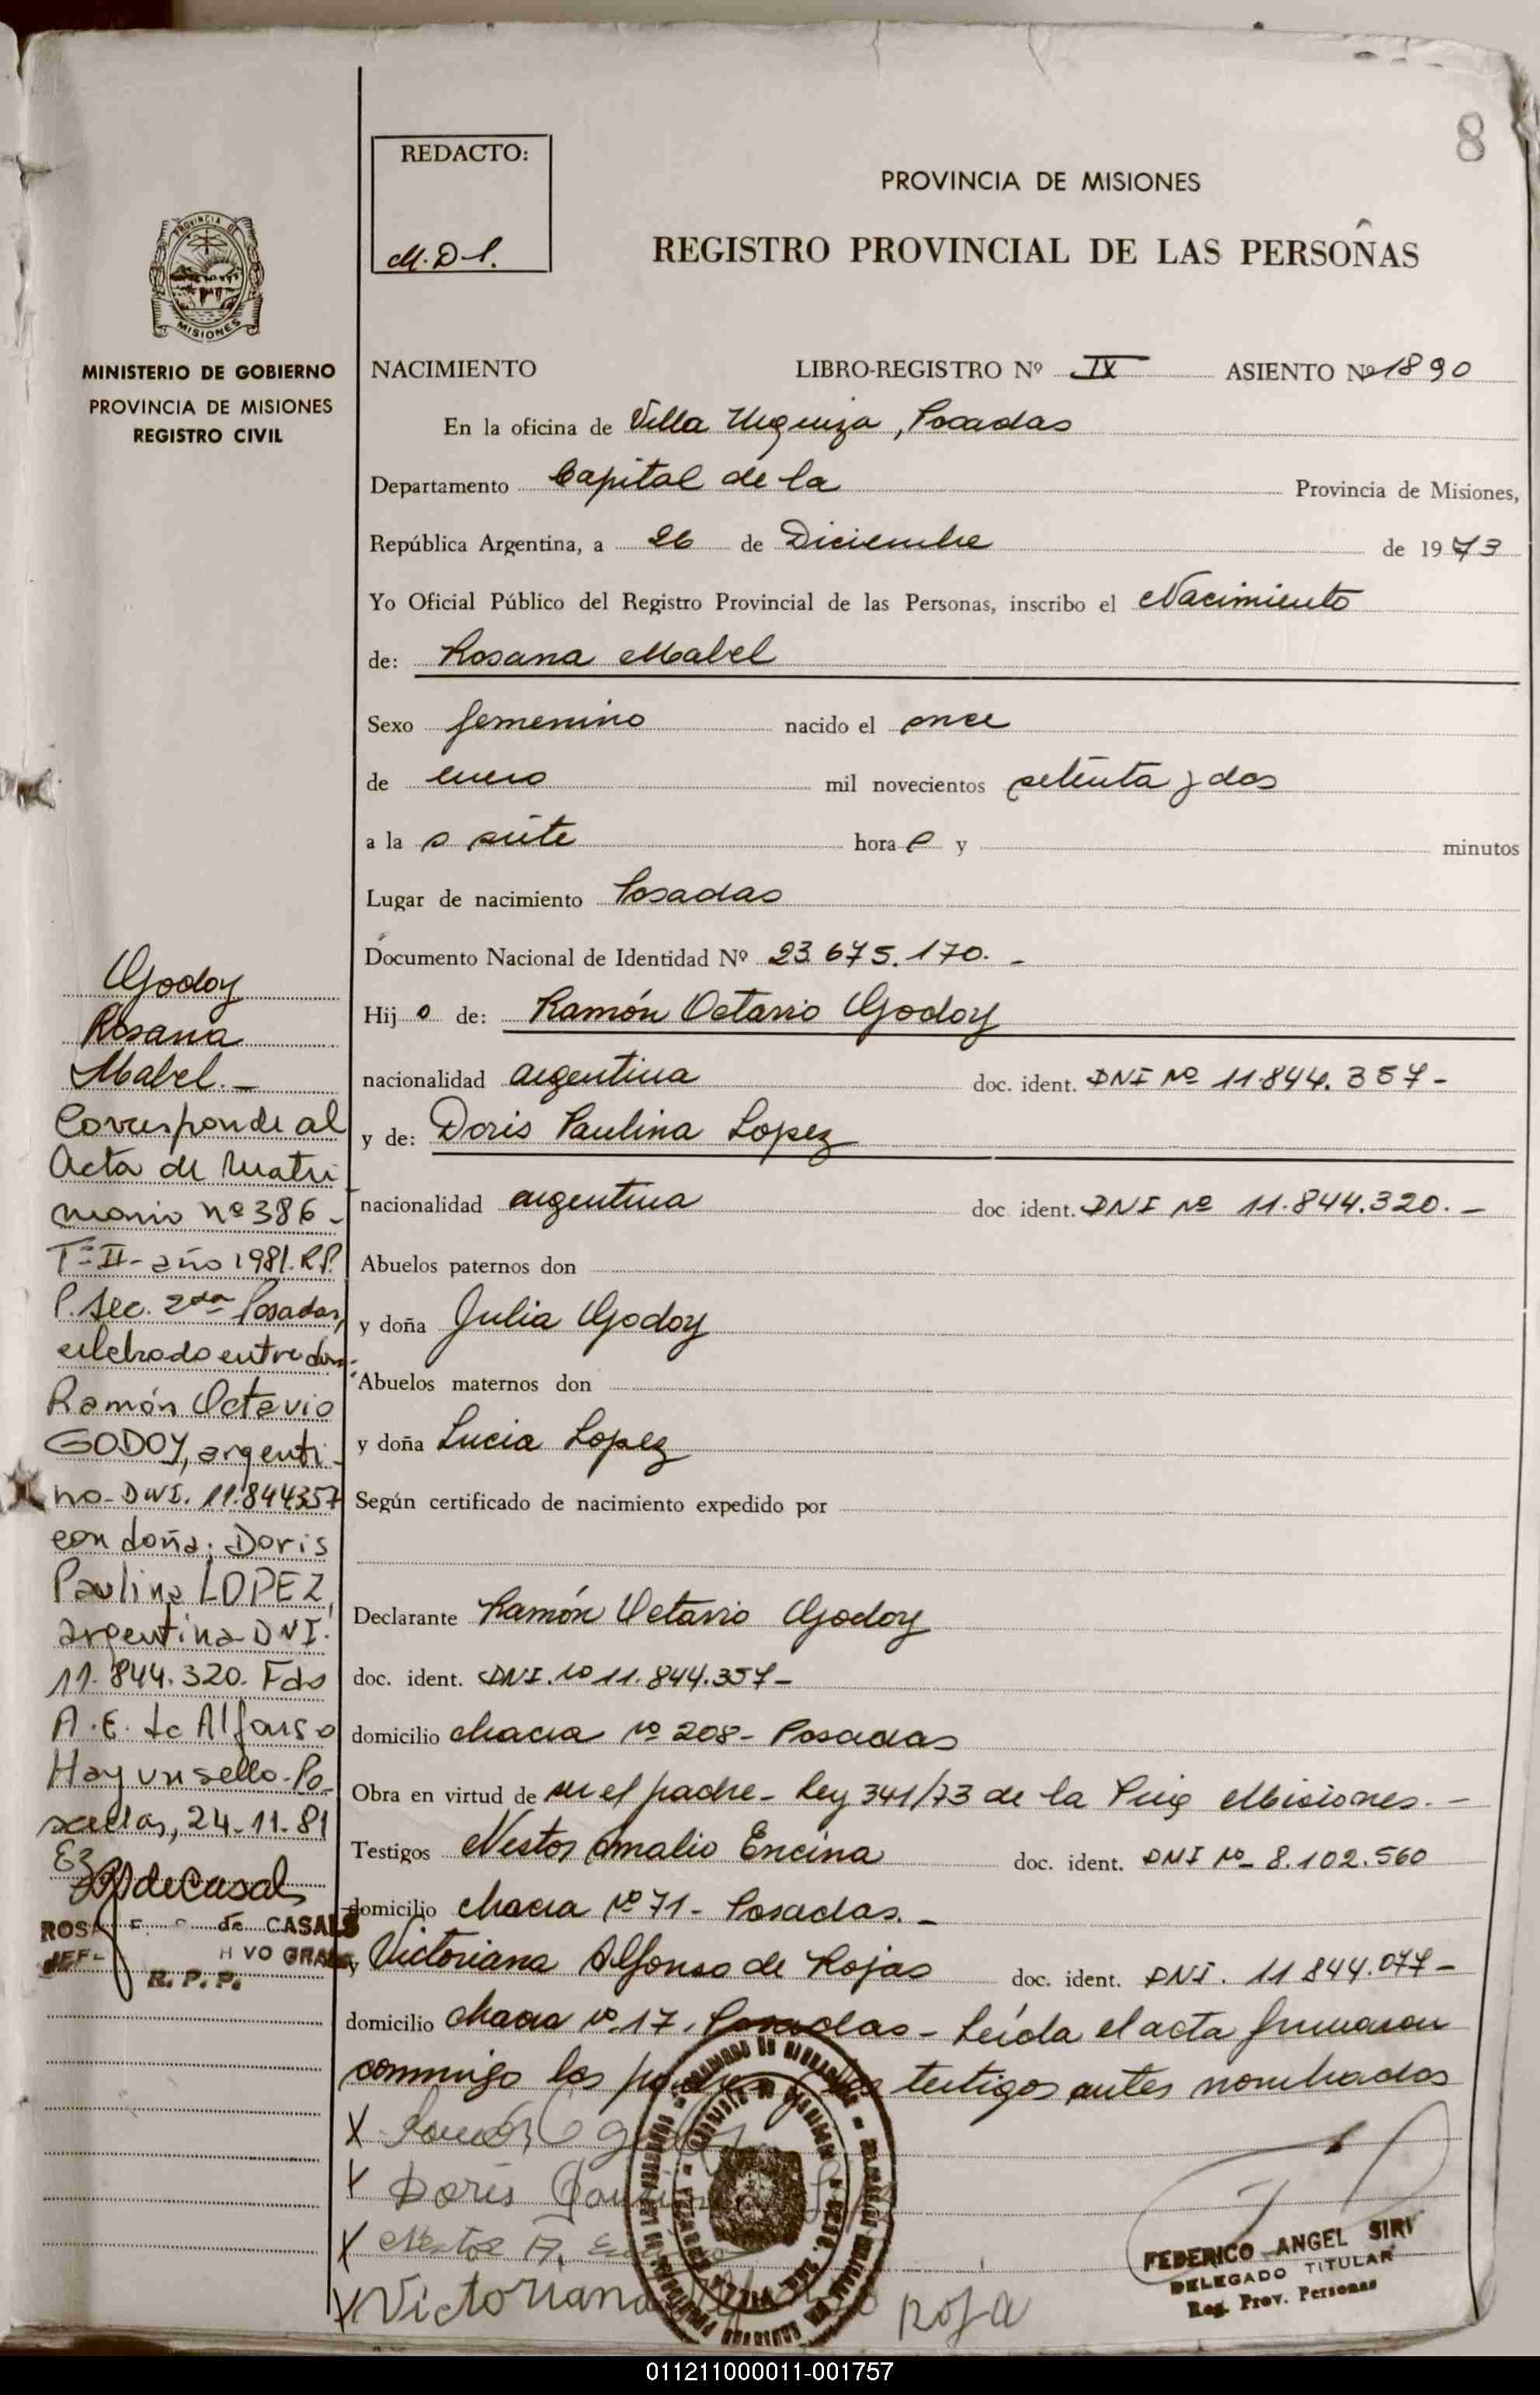 8
REDACTO:
M.D.L.
PROVINCIA DE MISIONES
REGISTRO PROVINCIAL DE LAS PERSONAS
PROVINCIA DE
MISIONES
MINISTERIO DE GOBIERNO
PROVINCIA DE MISIONES
REGISTRO CIVIL
NACIMIENTO LIBRO-REGISTRO Nº IX ASIENTO Nº 1890
En la oficina de Villa Urquiza, Posadas
Departamento Capital de la Provincia de Misiones,
República Argentina, a 26 de Diciembre de 1973
Yo Oficial Público del Registro Provincial de las Personas, inscribo el Nacimiento
de: Rosana Mabel
Sexo femenino nacido el once
de enero mil novecientos setenta y dos
a la s siete hora s y minutos
Lugar de nacimiento Posadas
Documento Nacional de Identidad Nº 23.675.170.-
Hij o de: Ramón Octavio Godoy
nacionalidad argentina doc. ident. DNI Nº 11.844.357-
y de: Doris Paulina Lopez
nacionalidad argentina doc. ident. DNI Nº 11.844.320.-
Abuelos paternos don
y doña Julia Godoy
Abuelos maternos don
y doña Lucia Lopez
Según certificado de nacimiento expedido por
Declarante Ramón Octavio Godoy
doc. ident. DNI. Nº 11.844.357-
domicilio chacra Nº 208- Posadas
Obra en virtud de ser el padre- Ley 341/73 de la Misiones.-
Testigos Nestor Amalio Encina doc. ident. DNI Nº 8.102.560
domicilio chacra Nº 71- Posadas.-
y Victoriana Alfonso de Rojas doc. ident. DNI. 11.844.077-
domicilio chacra Nº 17, Posadas- Leída el acta firmaron
conmigo los padres testigos antes nombrados
Godoy
Rosana
Mabel.-
Corresponde al
Acta de Matri
monio nº 386-
Tº II- año 1981. R.P.
P. Sec. 2da Posadas,
celebrado entre don:
Ramón Octavio
GODOY, argenti-
no- DNI. 11.844357
con doña: Doris
Paulina LOPEZ,
argentina DNI.
11.844.320. Fdo
A.E. de Alfonso
Hay un sello- Po-
sadas, 24-11-81
deCasals
de CASALS
R. P. P.
X
X Doris
X Nestor A.
X Victoriana Roja
FEDERICO ANGEL SIRI
DELEGADO TITULAR
Reg. Prov. Personas
011211000011-001757